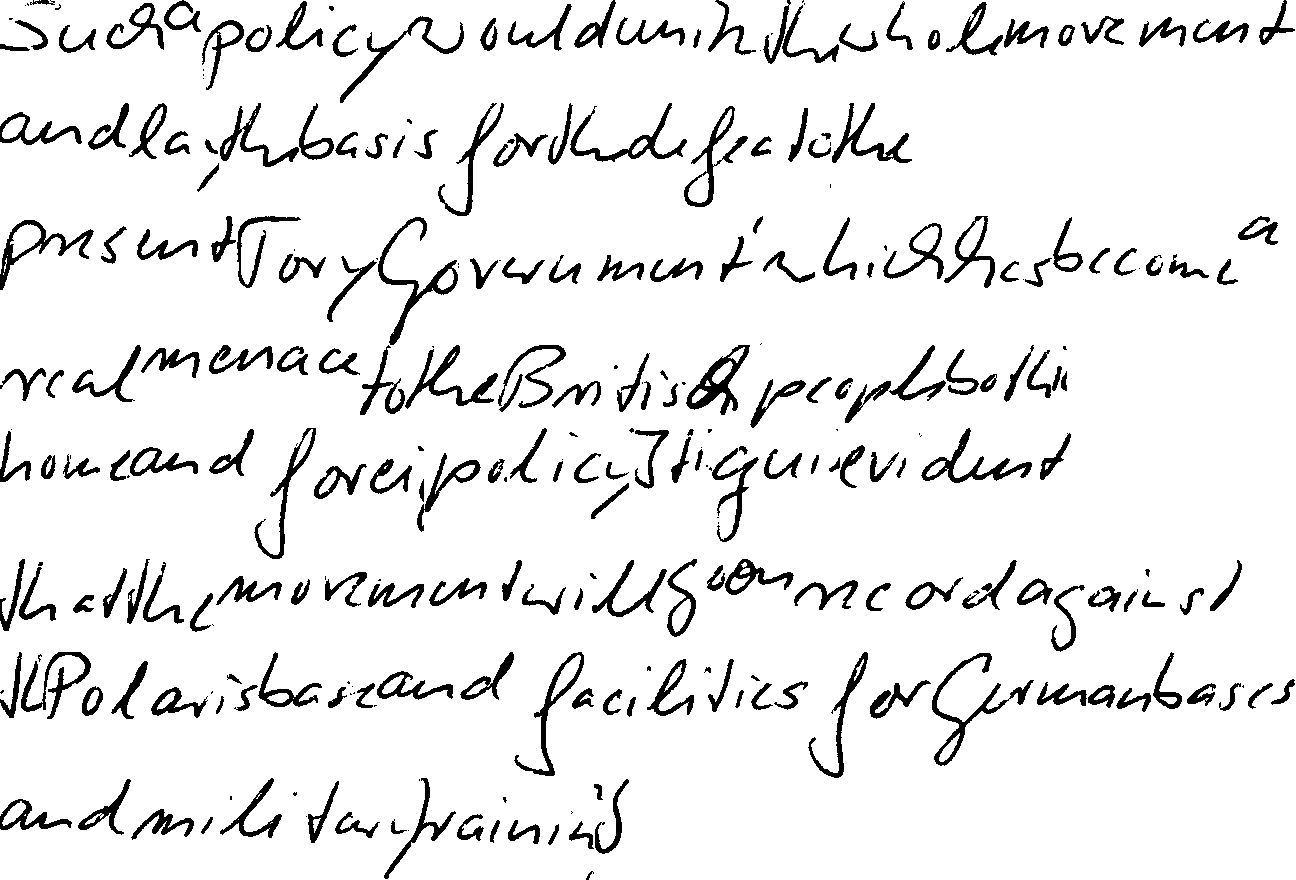 Such a policy would unite the whole movement
and lay the basis for the defeat of the
present Tory Government which has become a
real menace to the British people both in
home and foreign policy. It is quite evident
that the movement will go on record against
the Polaris base and facilities for German bases
and military training.